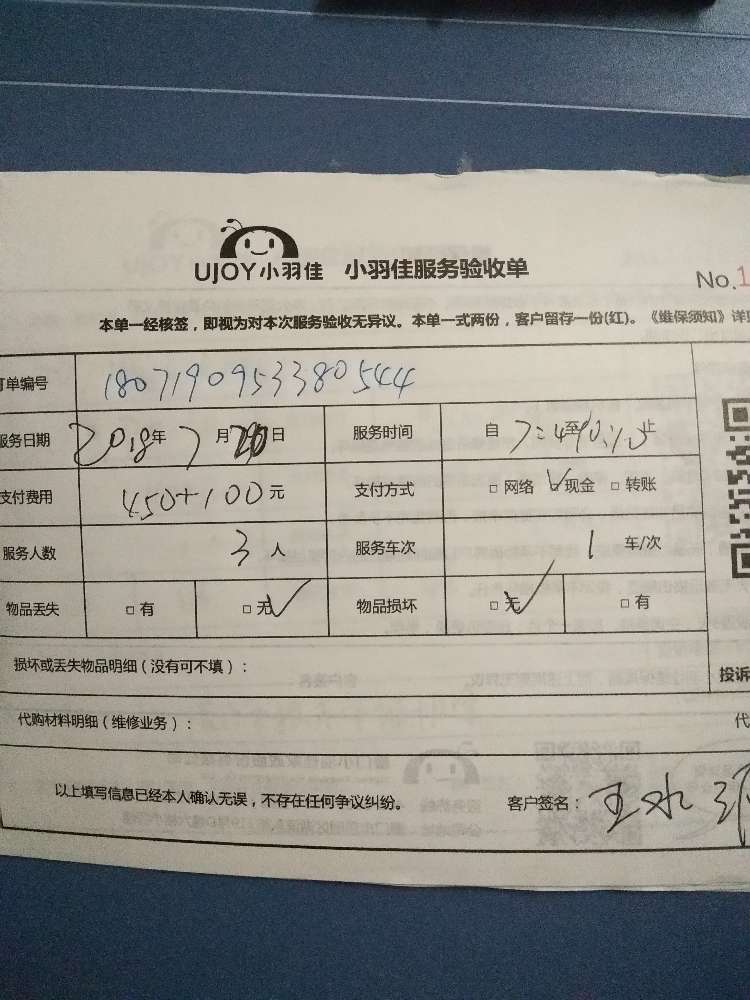 UJOY小羽佳 小羽佳服务验收单
No.1
本单一经核签，即视为对本次服务验收无异议。本单一式两份，客户留存一份(红)。《维保须知》详
订单编号 1807190953380544
服务日期 2018年7月日 服务时间 自7:至止
支付费用 450+100元 支付方式 □网络 □现金 □转账
服务人数 3人 服务车次 1车/次
物品丢失 □有 □无 物品损坏 □无 □有
损坏或丢失物品明细（没有可不填）：
投诉
代购材料明细（维修业务）：
代
以上填写信息已经本人确认无误，不存在任何争议纠纷。 客户签名：王水